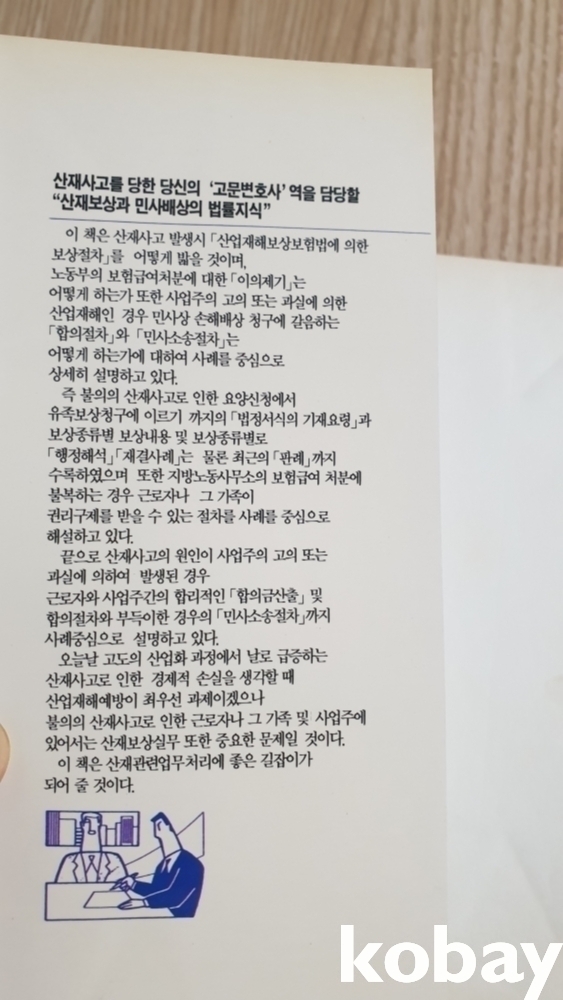 산재사고를 당한 당신의 '고문변호사' 역을 담당할
"산재보상과 민사배상의 법률지식"
이 책은 산재사고 발생시 「산업재해보상보험법에 의한
보상절차」를 어떻게 밟을 것이며,
노동부의 보험급여처분에 대한 「이의제기」는
어떻게 하는가 또한 사업주의 고의 또는 과실에 의한
산업재해인 경우 민사상 손해배상 청구에 갈음하는
「합의절차」와 「민사소송절차」는
어떻게 하는가에 대하여 사례를 중심으로
상세히 설명하고 있다.
즉 불의의 산재사고로 인한 요양신청에서
유족보상청구에 이르기 까지의 「법정서식의 기재요령」과
보상종류별 보상내용 및 보상종류별로
「행정해석」「재결사례」는 물론 최근의 「판례」까지
수록하였으며 또한 지방노동사무소의 보험급여 처분에
불복하는 경우 근로자나 그 가족이
권리구제를 받을 수 있는 절차를 사례를 중심으로
해설하고 있다.
끝으로 산재사고의 원인이 사업주의 고의 또는
과실에 의하여 발생된 경우
근로자와 사업주간의 합리적인 「합의금산출」 및
합의절차와 부득이한 경우의 「민사소송절차」까지
사례중심으로 설명하고 있다.
오늘날 고도의 산업화 과정에서 날로 급증하는
산재사고로 인한 경제적 손실을 생각할 때
산업재해예방이 최우선 과제이겠으나
불의의 산재사고로 인한 근로자나 그 가족 및 사업주에
있어서는 산재보상실무 또한 중요한 문제일 것이다.
이 책은 산재관련업무처리에 좋은 길잡이가
되어 줄 것이다.
kobay